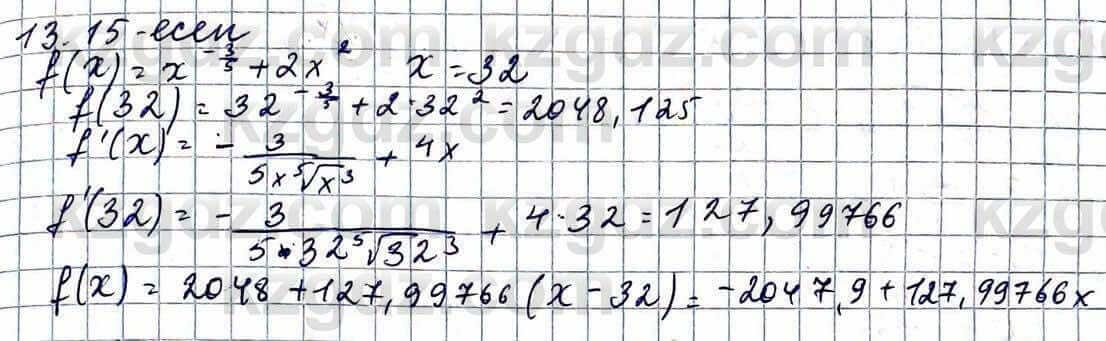 13.15-есеп
f(x) = x^{-3/5} + 2x^2   x = 32
f(32) = 32^{-3/5} + 2·32^2 = 2048,125
f'(x) = -3/(5x⁵√x³) + 4x
f'(32) = -3/(5·32⁵√32³) + 4·32 = 127,99766
f(x) = 2048 + 127,99766(x-32) = -2047,9 + 127,99766x